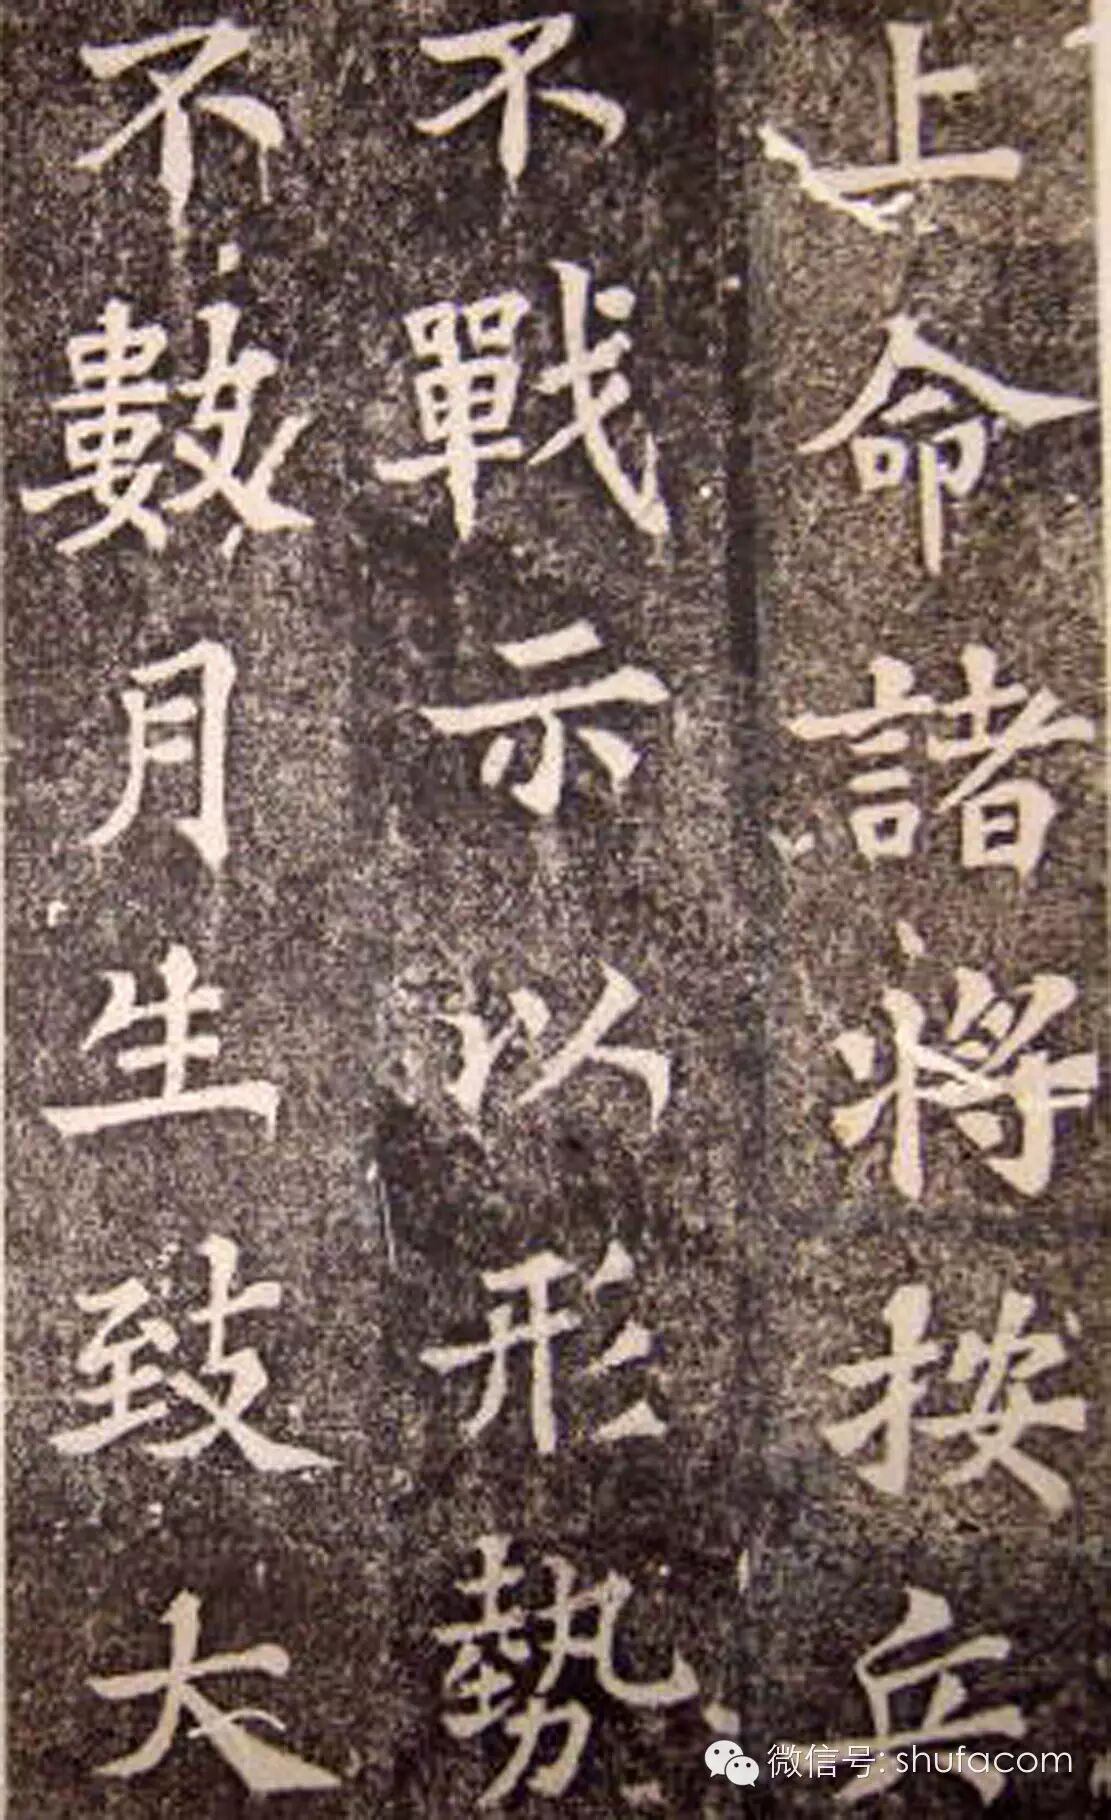 上命諸將按兵
不戰示以形勢
不數月生致大
微信号: shufacom